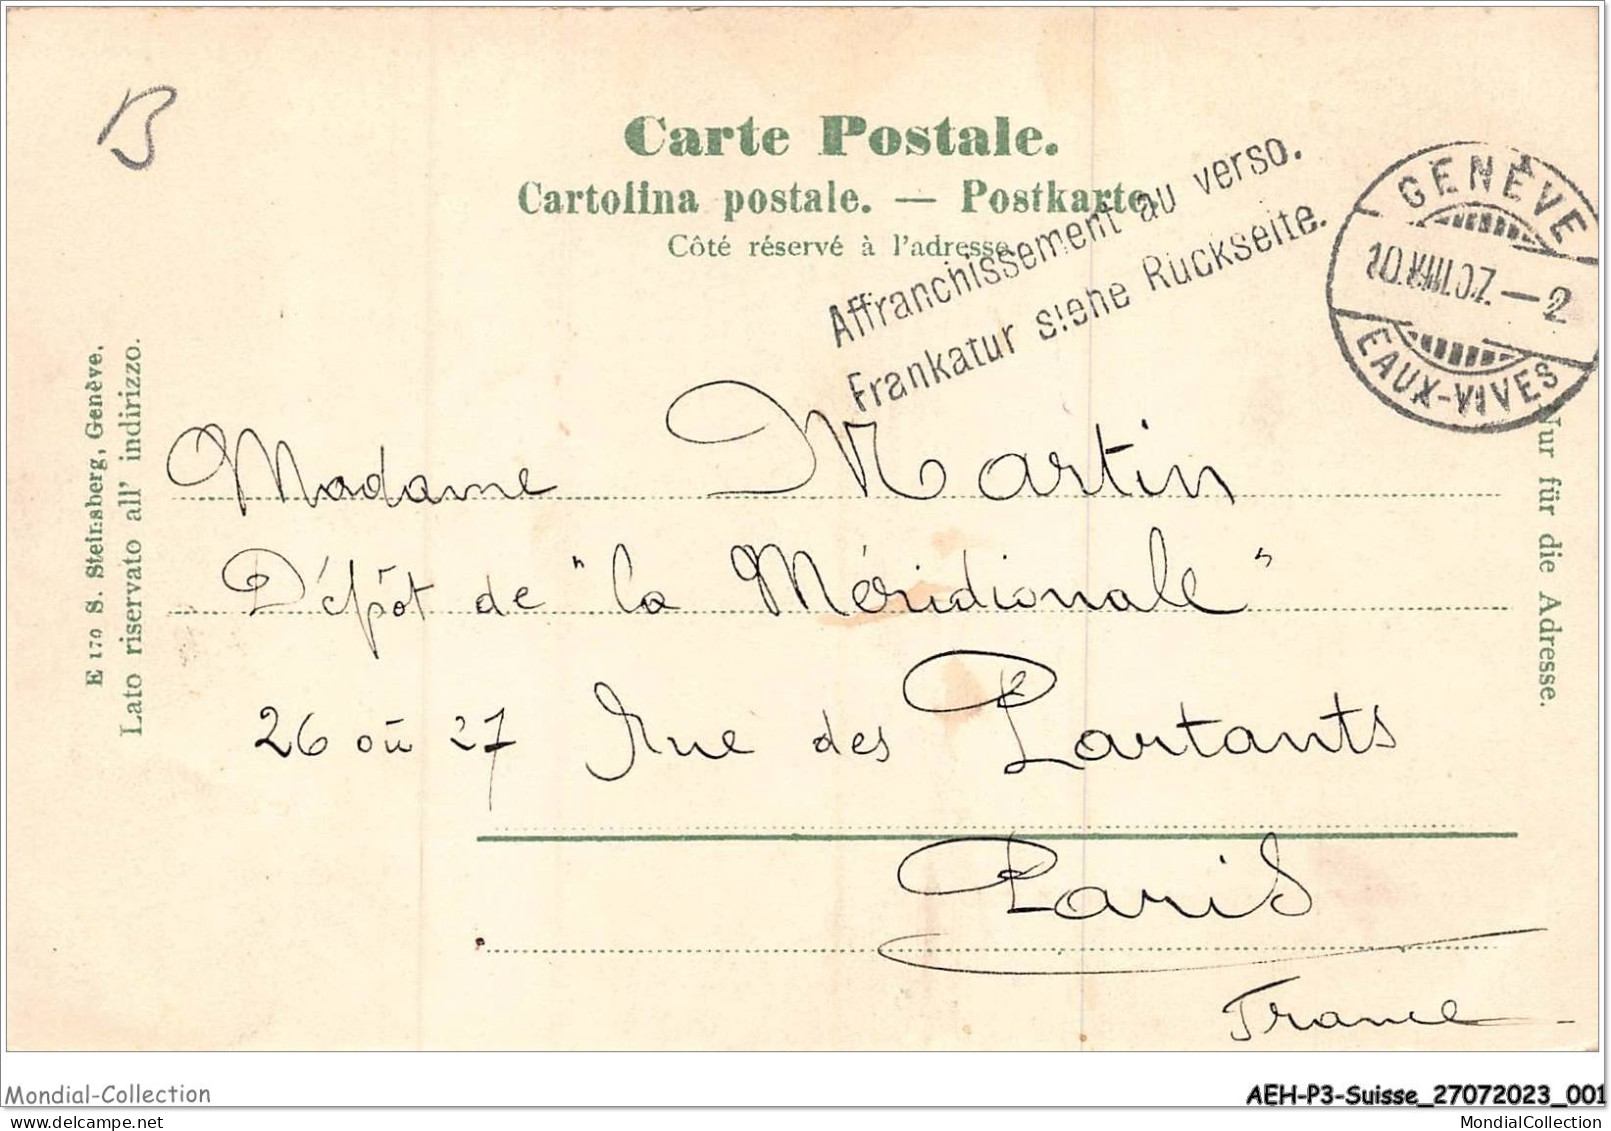 B
Carte Postale.
Cartolina postale. — Postkarte.
Côté réservé à l'adresse.
Affranchissement au verso.
Frankatur siehe Rückseite.
GENÈVE
–2
EAUX-VIVES
E 170 S. Steinsberg, Genève.
Lato riservato all' indirizzo.
Nur für die Adresse.
Madame Martin
Dépôt de "la Méridionale"
26 où 27 Rue des Partants
Paris
France
Mondial-Collection
AEH-P3-Suisse_27072023_001
MondialCollection.net
MondialCollection